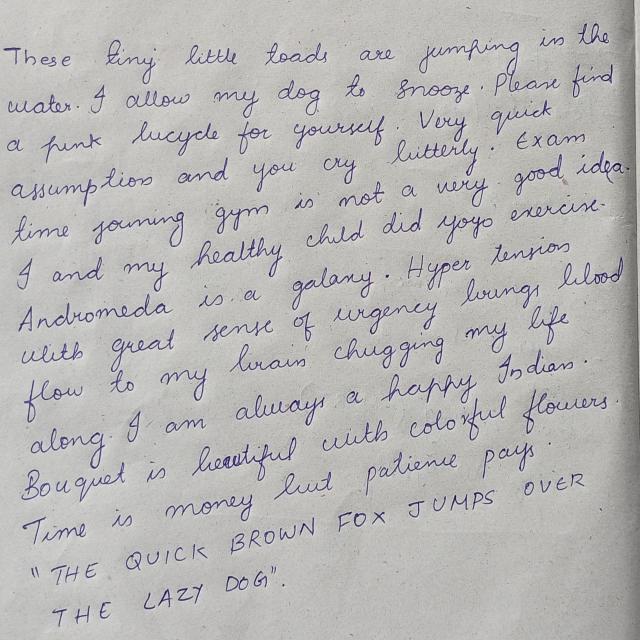 These tiny little toads are jumping in the
water. I allow my dog to snooze. Please find
a pink bicycle for yourself. Very quick
assumption and you cry bitterly. Exam
time joining gym is not a very good idea.
I and my healthy child did yoyo exercise.
Andromeda is a galaxy. Hyper tension
with great sense of urgency brings blood
flow to my brain chugging my life
along. I am always a happy Indian.
Bouquet is beautiful with colorful flowers.
Time is money but patience pays.
"THE QUICK BROWN FOX JUMPS OVER
THE LAZY DOG".